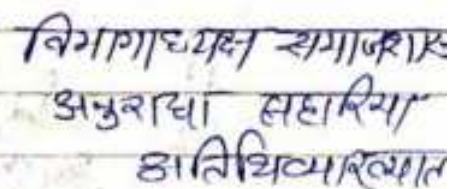 विभागाध्यक्ष समाजशास्
अनुराधा सहारिया
अतिथिव्याख्यात